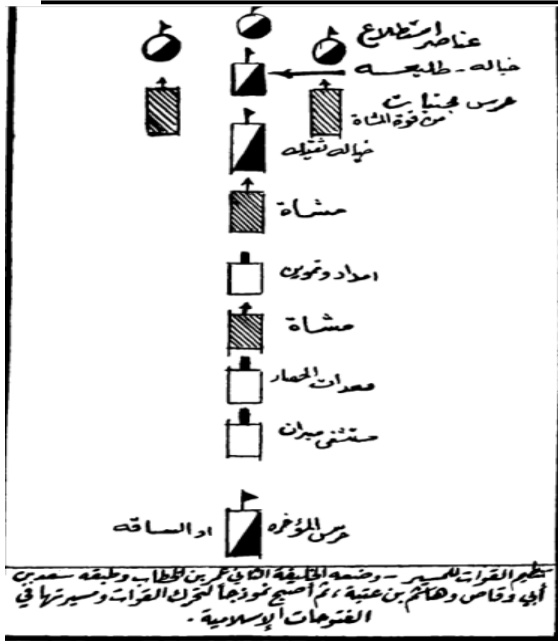 عناصر استطلاع
خياله - طليعه
حرس مجنبات
من قوة المشاة
خياله ثقيله
مشاة
امداد وتموين
مشاة
معدات الحصار
مستشفى ميدان
حرس المؤخره او الساقه
تنظيم القوات للمسير - وضعه الخليفة الثاني عمر بن الخطاب وطبقه سعد بن
أبي وقاص وهاشم بن عتبة ، ثم أصبح نموذجاً لتحرك القوات ومسيرتها في
الفتوحات الإسلامية .